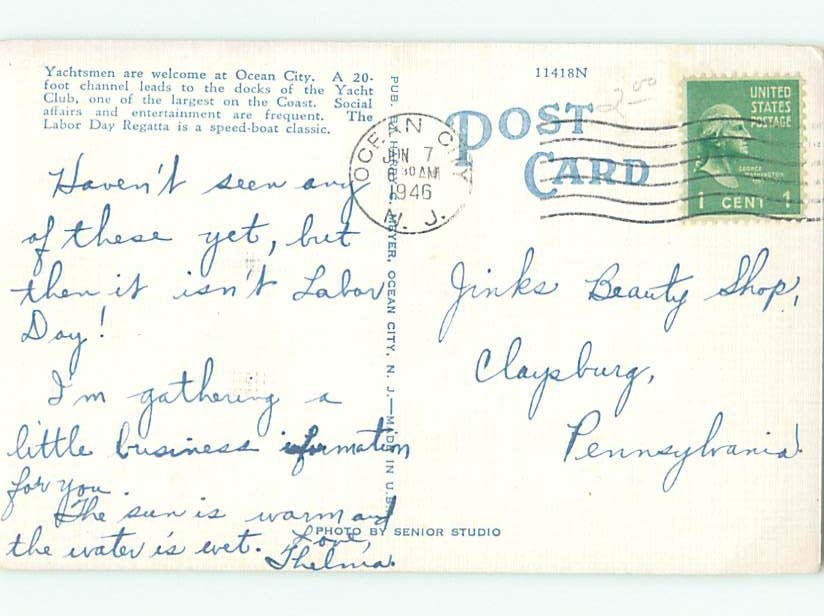 Yachtsmen are welcome at Ocean City. A 20-
foot channel leads to the docks of the Yacht
Club, one of the largest on the Coast. Social
affairs and entertainment are frequent. The
Labor Day Regatta is a speed-boat classic.
Haven't seen any
of these yet, but
then it isn't Labor
Day!
I'm gathering a
little business information
for you.
The sun is warm and
the water is wet. Love,
Thelma.
OCEAN CITY
JUN 7
30 AM
1946
N. J.
MEYER, OCEAN CITY, N. J.—MADE IN U.S.
PHOTO BY SENIOR STUDIO
11418N
2.00
POST
CARD
UNITED
STATES
POSTAGE
GEORGE
WASHINGTON
1 CENT 1
Jinks Beauty Shop,
Claysburg,
Pennsylvania.